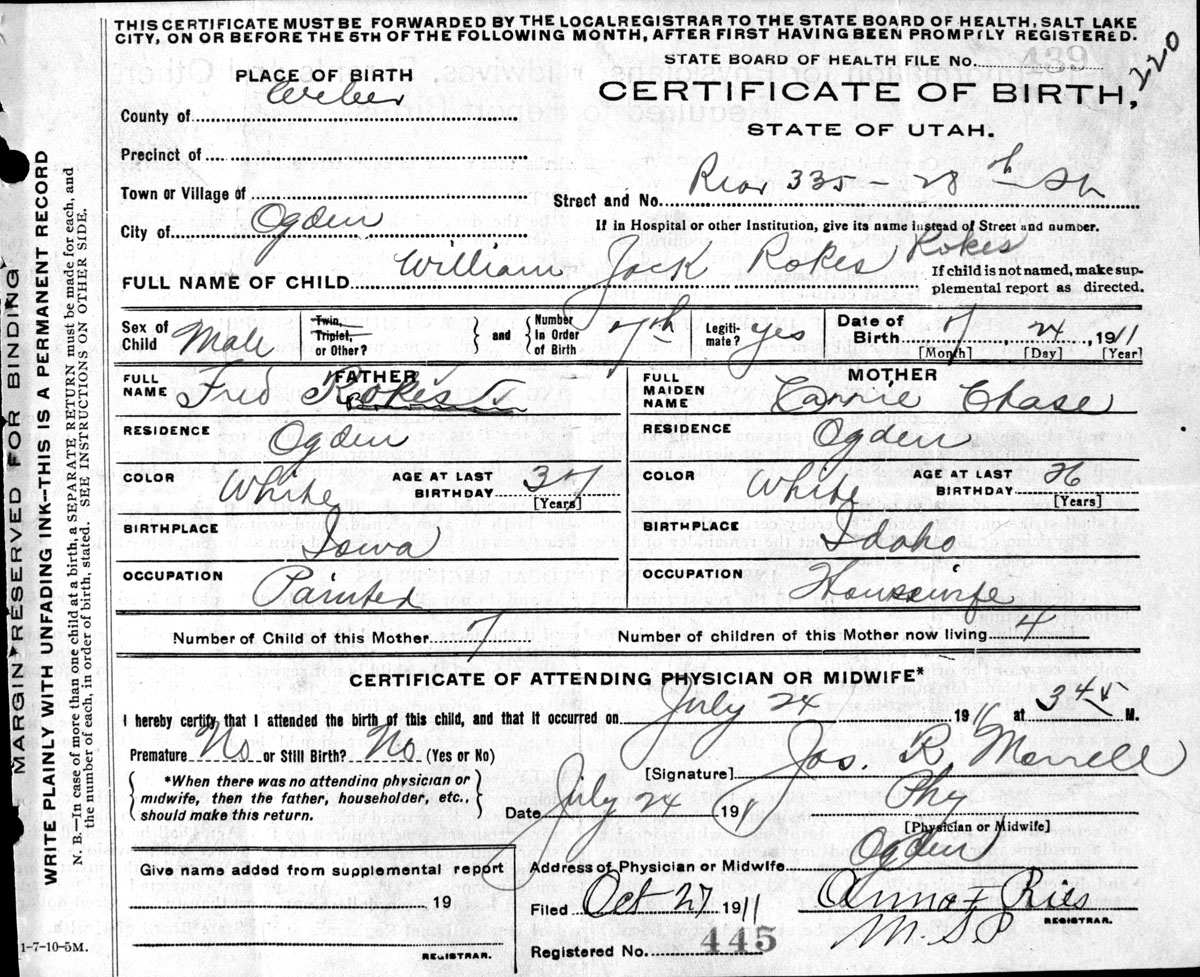 THIS CERTIFICATE MUST BE FORWARDED BY THE LOCAL REGISTRAR TO THE STATE BOARD OF HEALTH, SALT LAKE
CITY, ON OR BEFORE THE 5TH OF THE FOLLOWING MONTH, AFTER FIRST HAVING BEEN PROMPTLY REGISTERED.
STATE BOARD OF HEALTH FILE No. 439
220
PLACE OF BIRTH
CERTIFICATE OF BIRTH,
STATE OF UTAH.
County of Weber
Precinct of
Town or Village of
Street and No. Rear 335 - 28th St
City of Ogden
If in Hospital or other Institution, give its name instead of Street and number.
FULL NAME OF CHILD William Jack Rokes Rokes
If child is not named, make sup-
plemental report as directed.
Sex of Child Male
Twin, Triplet, or Other? and Number In Order of Birth 7th
Legiti-mate? yes
Date of Birth 7 24, 1911
[Month] [Day] [Year]
FATHER
FULL NAME Fred Rokes
MOTHER
FULL MAIDEN NAME Carrie Chase
RESIDENCE Ogden
RESIDENCE Ogden
COLOR White AGE AT LAST BIRTHDAY 37 [Years]
COLOR White AGE AT LAST BIRTHDAY 26 [Years]
BIRTHPLACE Iowa
BIRTHPLACE Idaho
OCCUPATION Painter
OCCUPATION Housewife
Number of Child of this Mother 7
Number of children of this Mother now living 4
CERTIFICATE OF ATTENDING PHYSICIAN OR MIDWIFE*
I hereby certify that I attended the birth of this child, and that it occurred on July 24 1911 at 345 M.
Premature No or Still Birth? No (Yes or No)
[Signature] Jos. R. Morrell
*When there was no attending physician or
midwife, then the father, householder, etc.,
should make this return.
Date July 24 1911
Phy
[Physician or Midwife]
Give name added from supplemental report
19
REGISTRAR.
Address of Physician or Midwife Ogden
Filed Oct 27 1911
Anna F Ries
REGISTRAR.
Registered No. 445
1-7-10-5M.
MARGIN RESERVED FOR BINDING
WRITE PLAINLY WITH UNFADING INK-THIS IS A PERMANENT RECORD
N. B.—In case of more than one child at a birth, a SEPARATE RETURN must be made for each, and
the number of each, in order of birth, stated. SEE INSTRUCTIONS ON OTHER SIDE.